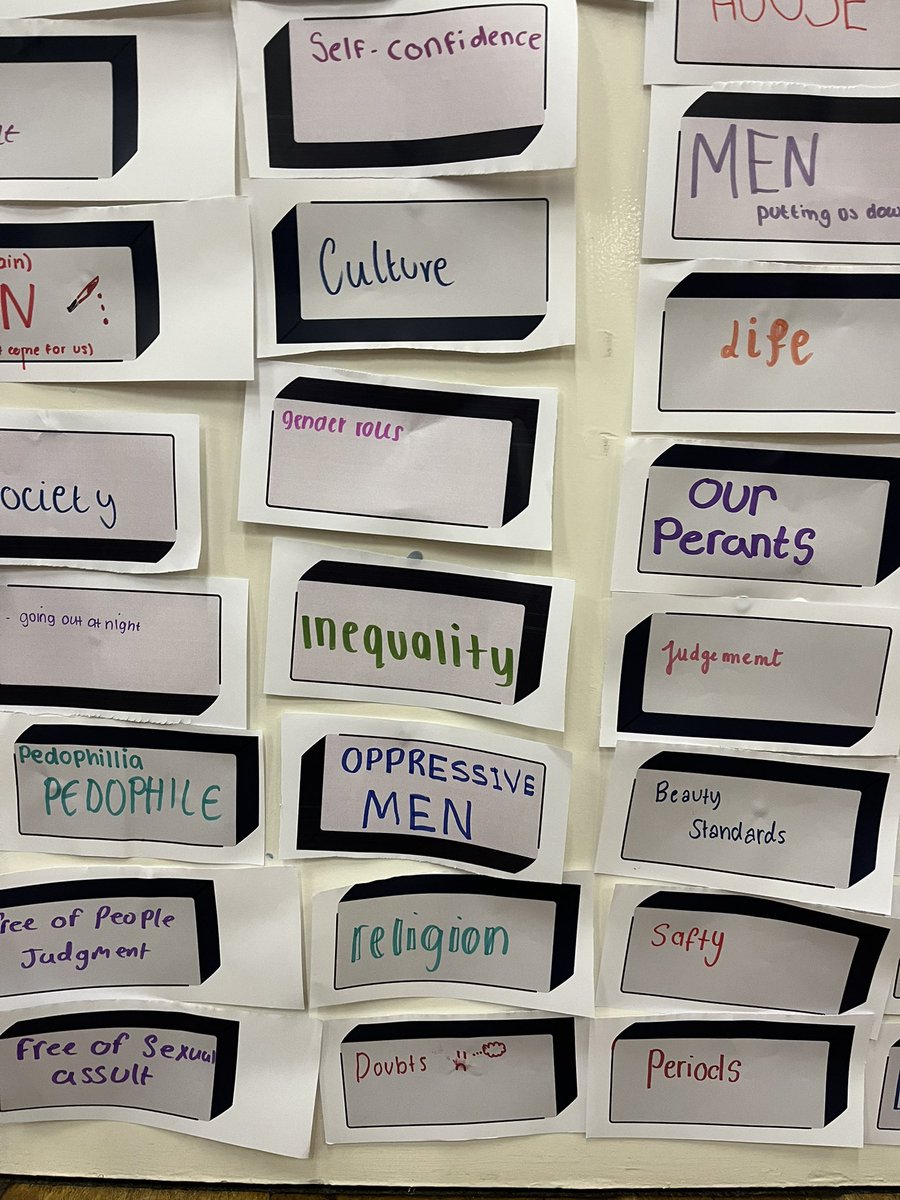 Self-confidence
Culture
gender rolls
inequality
OPPRESSIVE
MEN
religion
Doubts
ain)
N
come for us)
ociety
- going out at night
Pedophillia
PEDOPHILE
ree of People
Judgment
Free of Sexual
assult
HOUSE
MEN
putting us dow
Life
Our
Perants
Judgememt
Beauty
Standards
Safty
Periods